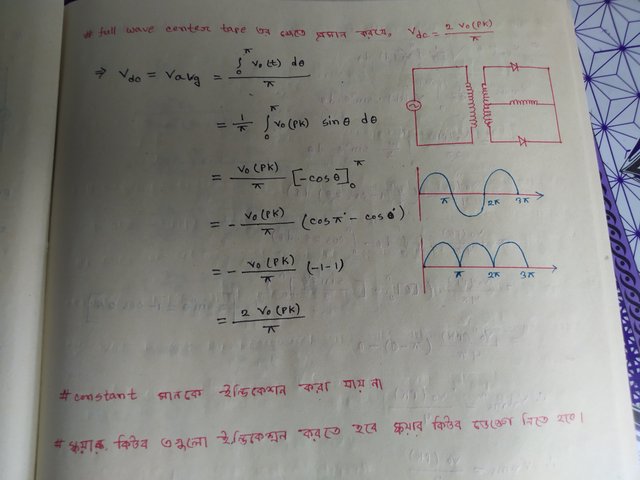 # full wave center tape এর ক্ষেত্রে প্রমান করতে, Vdc = 2 V₀(PK) / π
⇒ Vdc = Vavg = ∫₀^π V₀(t) dθ / π
= 1/π ∫₀^π V₀(PK) sinθ dθ
= V₀(PK)/π [-cosθ]₀^π
= - V₀(PK)/π (cosπ° - cos0°)
= - V₀(PK)/π (-1-1)
= 2 V₀(PK) / π
π 2π 3π
π 2π 3π
# constant মানকে ইন্ডিকেশন করা যায় না
# স্কয়ার, কিউব এগুলো ইন্ডিকেশন করতে হবে স্কয়ার কিউব ভেঙে নিতে হবে।